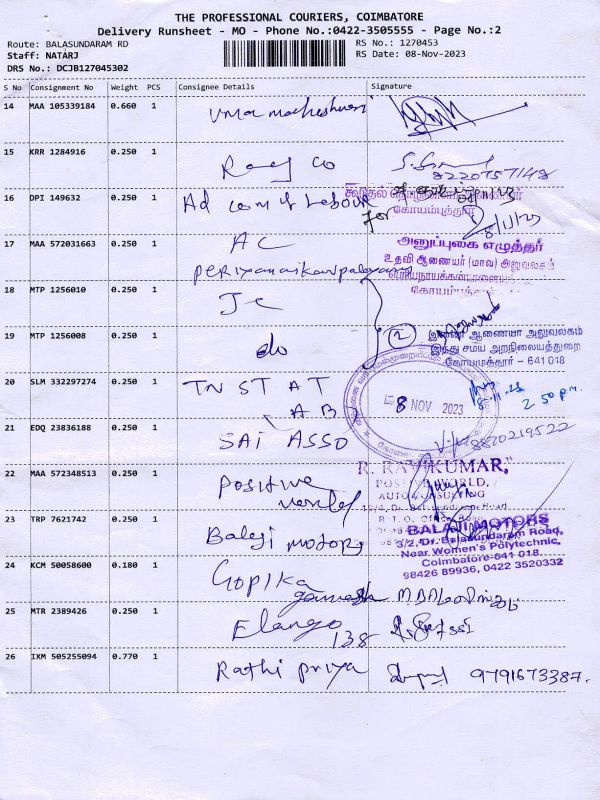 THE PROFESSIONAL COURIERS, COIMBATORE
Delivery Runsheet - MO - Phone No.:0422-3505555 - Page No.:2
Route: BALASUNDARAM RD
RS No.: 1270453
Staff: NATARJ
RS Date: 08-Nov-2023
DRS No.: DCJB127045302
S No Consignment No Weight PCS Consignee Details Signature
14 MAA 105339184 0.660 1 Uma maheshwari
15 KRR 1284916 0.250 1 Raay co
8220757148
16 DPI 149632 0.250 1 Ad com of Labour
for
கோயம்புத்தூர்
8/11/23
17 MAA 572031663 0.250 1 AC
அனுப்புகை எழுத்தர்
உதவி ஆணையர் (மாவ) அலுவலகம்
periyanaikanpalayam
பெரியநாயக்கன்பாளையம்
கோயம்புத்தூர்
18 MTP 1256010 0.250 1 Jc
2
இணை ஆணையர் அலுவலகம்
இந்து சமய அறநிலையத்துறை
கோயமுத்தூர் - 641 018
19 MTP 1256008 0.250 1 do
20 SLM 332297274 0.250 1 TN ST A T
A B
8 NOV 2023
8.11.23
2 50 p.m.
21 EDQ 23836188 0.250 1 SAI ASSO
8870219522
22 MAA 572348513 0.250 1 Positive
World
R. RAVIKUMAR,
POSITIVE WORLD,
AUTO CONSULTING
R.T.O. Office Road
23 TRP 7621742 0.250 1 Balaji motors
BALAJI MOTORS
3/2, Dr. Balasundaram Road,
Near Women's Polytechnic,
Coimbatore-641 018.
98426 89936, 0422 3520332
24 KCM 50058600 0.180 1 Gopika
ganesh
25 MTR 2389426 0.250 1 Elango
138
26 IXM 505255094 0.770 1 Rathi priya
9791673387.